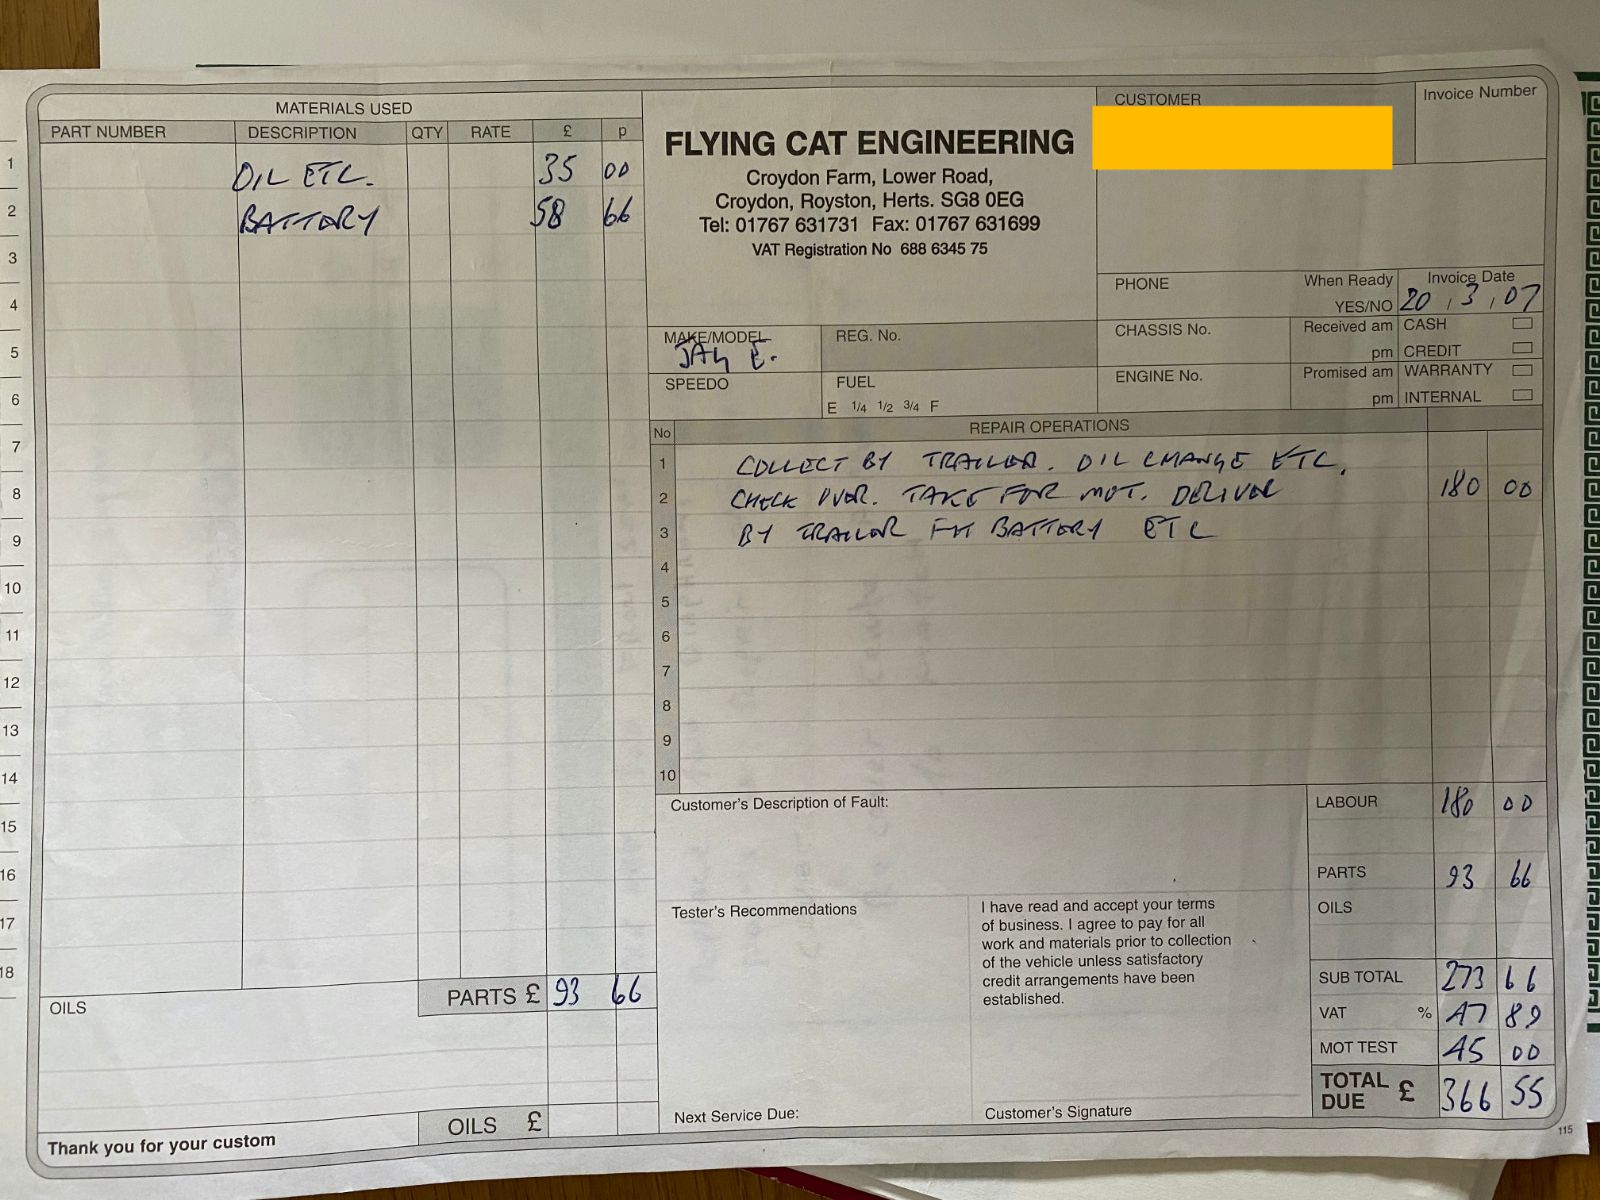 MATERIALS USED
PART NUMBER DESCRIPTION QTY RATE £ p
1 OIL ETC. 35 00
2 BATTERY 58 66
3
4
5
6
7
8
9
10
11
12
13
14
15
16
17
18
PARTS £ 93 66
OILS
OILS £
Thank you for your custom
FLYING CAT ENGINEERING
Croydon Farm, Lower Road,
Croydon, Royston, Herts. SG8 0EG
Tel: 01767 631731 Fax: 01767 631699
VAT Registration No 688 6345 75
CUSTOMER
Invoice Number
PHONE
When Ready
YES/NO
Invoice Date
20 , 3 , 07
MAKE/MODEL
JAG E.
REG. No.
CHASSIS No.
Received am
pm
CASH
CREDIT
SPEEDO
FUEL
E 1/4 1/2 3/4 F
ENGINE No.
Promised am
pm
WARRANTY
INTERNAL
No REPAIR OPERATIONS
1 COLLECT BY TRAILER. OIL CHANGE ETC.
2 CHECK OVER. TAKE FOR MOT. DELIVER 180 00
3 BY TRAILER FIT BATTERY ETC
4
5
6
7
8
9
10
Customer's Description of Fault:
LABOUR 180 00
PARTS 93 66
OILS
Tester's Recommendations
I have read and accept your terms
of business. I agree to pay for all
work and materials prior to collection
of the vehicle unless satisfactory
credit arrangements have been
established.
SUB TOTAL 273 66
VAT % 47 89
MOT TEST 45 00
TOTAL DUE £ 366 55
Next Service Due:
Customer's Signature
115